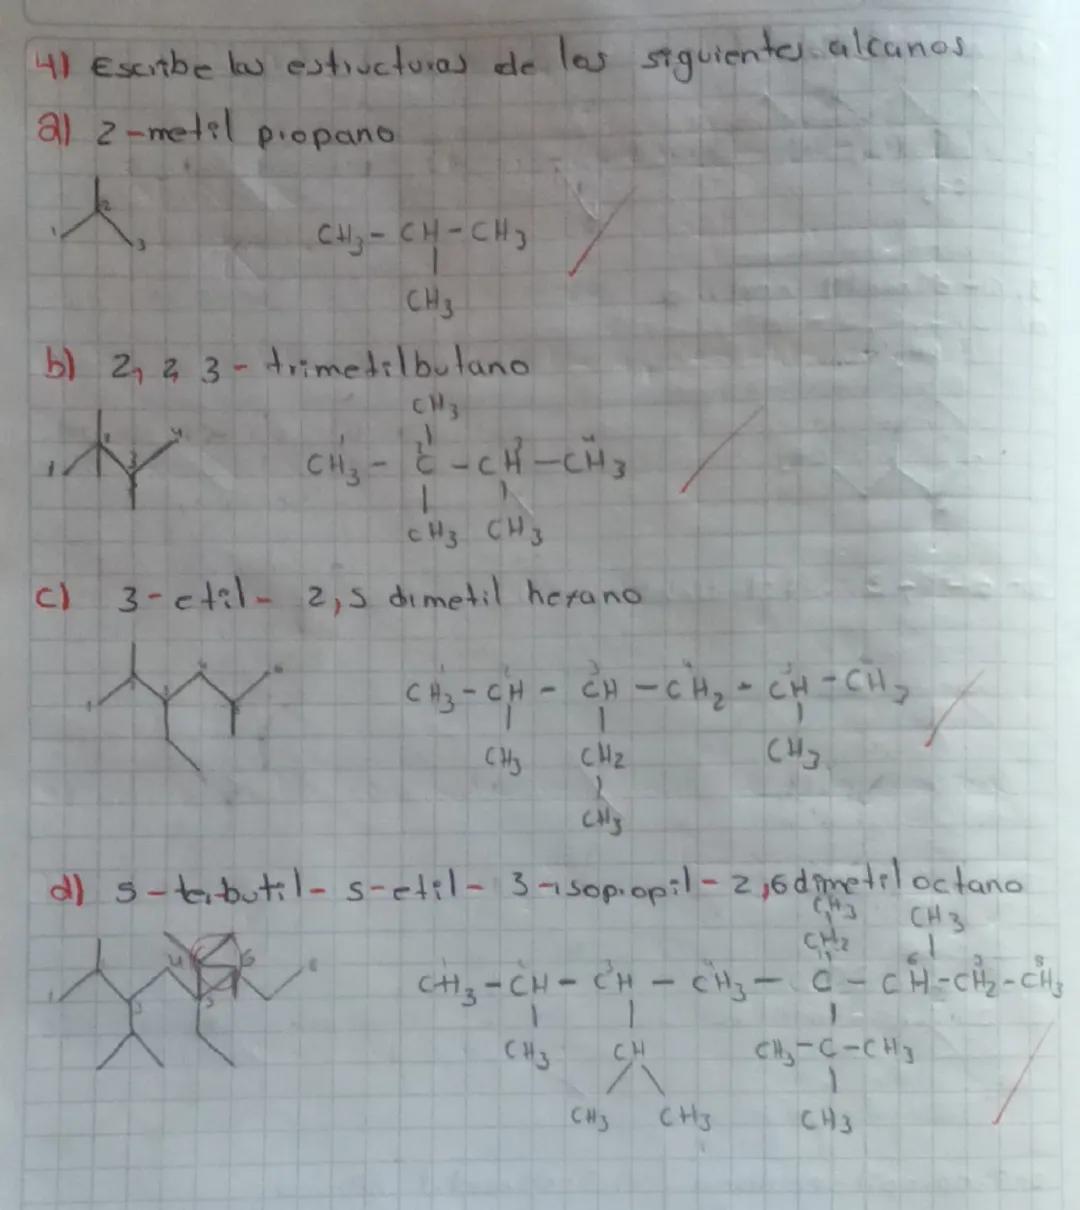 4) Escribe las estructuras de los siguientes alcanos
a) 2-metil propano
1 2 3
CH3 - CH - CH3
CH3
b) 2, 2, 3 - trimetilbutano
CH3
1 2 3 4
CH3 - C - CH - CH3
CH3 CH3
c) 3-etil- 2,5 dimetil hexano
CH3 - CH - CH - CH2 - CH - CH3
CH3 CH2 CH3
CH3
d) 5-terbutil- 5-etil- 3-isopropil- 2,6 dimetil octano
CH3 CH3
CH2
CH3 - CH - CH - CH3 - C - CH - CH2 - CH3
CH3 CH CH3 - C - CH3
CH3 CH3 CH3